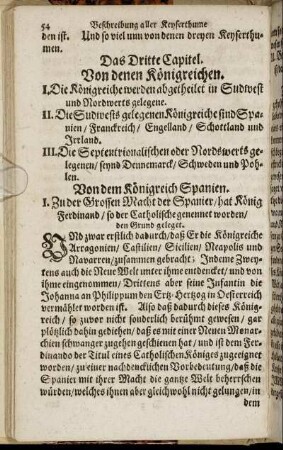 54 Beschreibung aller Keyserthume
den ist. Und so viel nun von denen dreyen Keyserthu-
men.
Das Dritte Capitel.
Von denen Königreichen.
I. Die Königreiche werden abgetheilet in Sudwest
und Nordwerts gelegene.
II. Die Sudwests gelegenen Königreiche sind Spa-
nien / Franckreich / Engelland / Schottland und
Irrland.
III. Die Septentrionalischen oder Nordswerts ge-
legenen / seynd Dennemarck / Schweden und Poh-
len.
Von dem Königreich Spanien.
I. Zu der Grossen Macht der Spanier / hat König
Ferdinand / so der Catholische genennet worden /
den Grund geleget.
UNd zwar erstlich dadurch / daß Er die Königreiche
Arragonien / Castilien / Sicilien / Neapolis und
Navarren / zusammen gebracht; Indeme Zwey-
tens auch die Neue Welt unter ihme entdecket / und von
ihme eingenommen / Drittens aber seine Infantin die
Johanna an Philippum den Ertz-Hertzog in Oesterreich
vermählet worden ist. Also daß dadurch dieses König-
reich / so zuvor nicht sonderlich berühmt gewesen / gar
plötzlich dahin gediehen / daß es mit einer Neuen Monar-
chien schwanger zugehen geschienen hat / und ist dem Fer-
dinando der Titul eines Catholischen Königes zugeeignet
worden / zu einer nachdencklichen Vorbedeutung / daß die
Spanier mit ihrer Macht die gantze Welt beherrschen
würden / welches ihnen aber gleichwohl nicht gelungen / in
dem